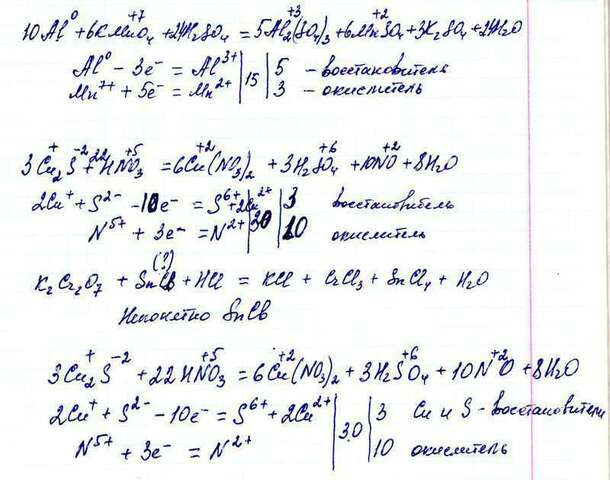 +7 +3 +2
10Al⁰ + 6KMnO₄ + 24H₂SO₄ = 5Al₂(SO₄)₃ + 6MnSO₄ + 3K₂SO₄ + 24H₂O
Al⁰ - 3e⁻ = Al³⁺ | 15 | 5 - восстановитель
Mn⁷⁺ + 5e⁻ = Mn²⁺ | | 3 - окислитель
+ -2 +5 +2 +6 +2
3Cu₂S + 22HNO₃ = 6Cu(NO₃)₂ + 3H₂SO₄ + 10NO + 8H₂O
2Cu⁺ + S²⁻ - 10e⁻ = S⁶⁺ + 2Cu²⁺ | 30 | 3 восстановитель
N⁵⁺ + 3e⁻ = N²⁺ | | 10 окислитель
(?)
K₂Cr₂O₇ + SnCB + HCl = KCl + CrCl₃ + SnCl₄ + H₂O
Непонятно SnCB
+ -2 +5 +2 +6 +2
3Cu₂S + 22HNO₃ = 6Cu(NO₃)₂ + 3H₂SO₄ + 10NO + 8H₂O
2Cu⁺ + S²⁻ - 10e⁻ = S⁶⁺ + 2Cu²⁺ | 30 | 3 Cu и S - восстановители
N⁵⁺ + 3e⁻ = N²⁺ | | 10 окислитель